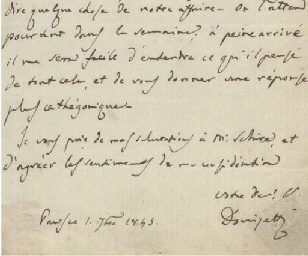 dire quelque chose de notre affaire. On l'attend
pourtant dans la semaine; à peine arrivé
il me sera facile d'entendre ce qu'il pense
de tout cela, et de vous donner une réponse
plus cathégorique.
Je vous prie de mes salutations à Mr.
d'agréer les sentiments de ma considération
votre
Paris ce 1. 1845.
Donizetti